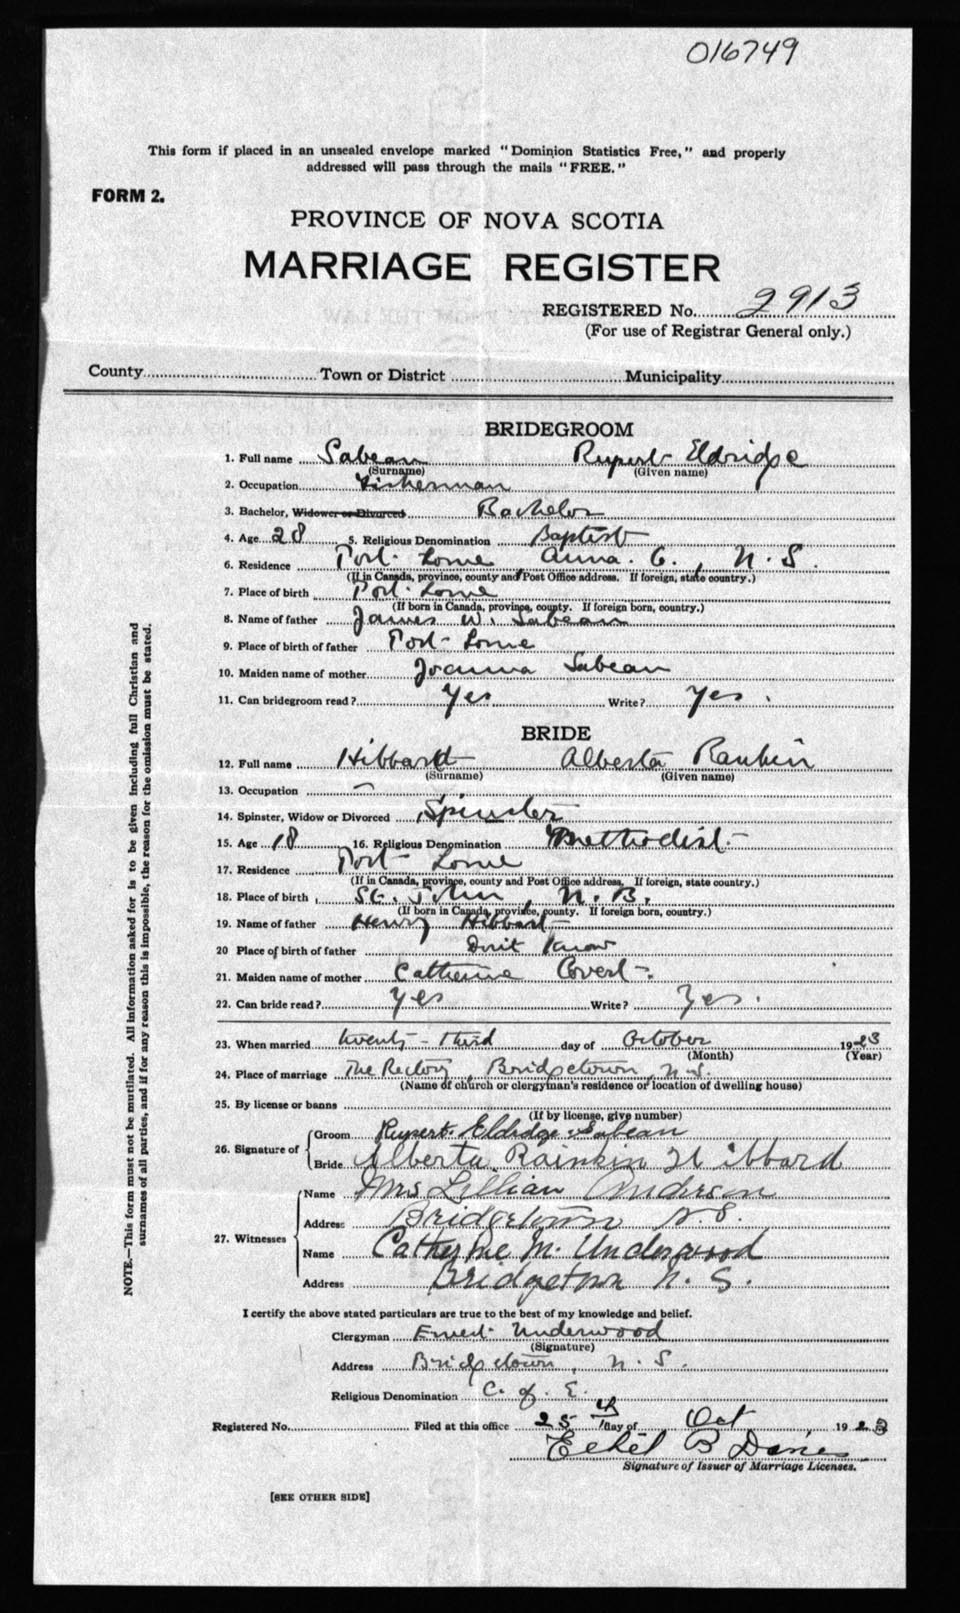 016749
This form if placed in an unsealed envelope marked "Dominion Statistics Free," and properly
addressed will pass through the mails "FREE."
FORM 2.
PROVINCE OF NOVA SCOTIA
MARRIAGE REGISTER
REGISTERED No. 2913
(For use of Registrar General only.)
County Town or District Municipality
BRIDEGROOM
1. Full name Sabean Rupert Eldridge
(Surname) (Given name)
2. Occupation Fisherman
3. Bachelor, Widower or Divorced Bachelor
4. Age 28 5. Religious Denomination Baptist
6. Residence Port Lorne Anna. C., N.S.
(If in Canada, province, county and Post Office address. If foreign, state country.)
7. Place of birth Port Lorne
(If born in Canada, province, county. If foreign born, country.)
8. Name of father James W. Sabean
9. Place of birth of father Port Lorne
10. Maiden name of mother Joanna Sabean
11. Can bridegroom read? Yes Write? Yes.
BRIDE
12. Full name Hibbard Alberta Rankin
(Surname) (Given name)
13. Occupation —
14. Spinster, Widow or Divorced Spinster
15. Age 18 16. Religious Denomination Methodist
17. Residence Port Lorne
(If in Canada, province, county and Post Office address. If foreign, state country.)
18. Place of birth St. John, N.B.
(If born in Canada, province, county. If foreign born, country.)
19. Name of father Henry Hibbard
20 Place of birth of father Don't Know
21. Maiden name of mother Catherine Covert
22. Can bride read? Yes Write? Yes.
23. When married twenty-third day of October 1923
(Month) (Year)
24. Place of marriage The Rectory, Bridgetown, N.S.
(Name of church or clergyman's residence or location of dwelling house)
25. By license or banns
(If by license, give number)
26. Signature of Groom Rupert Eldridge Sabean
Bride Alberta Rainkin Hibbard
27. Witnesses Name Mrs Lillian Anderson
Address Bridgetown N.S.
Name Catherine M. Underwood
Address Bridgetown N.S.
I certify the above stated particulars are true to the best of my knowledge and belief.
Clergyman Ernest Underwood
(Signature)
Address Bridgetown, N.S.
Religious Denomination C. of E.
Registered No. Filed at this office 25th day of Oct 1923
Ethel B Davies
Signature of Issuer of Marriage Licenses.
[SEE OTHER SIDE]
NOTE.—This form must not be mutilated. All information asked for is to be given including full Christian and
surnames of all parties, and if for any reason this is impossible, the reason for the omission must be stated.